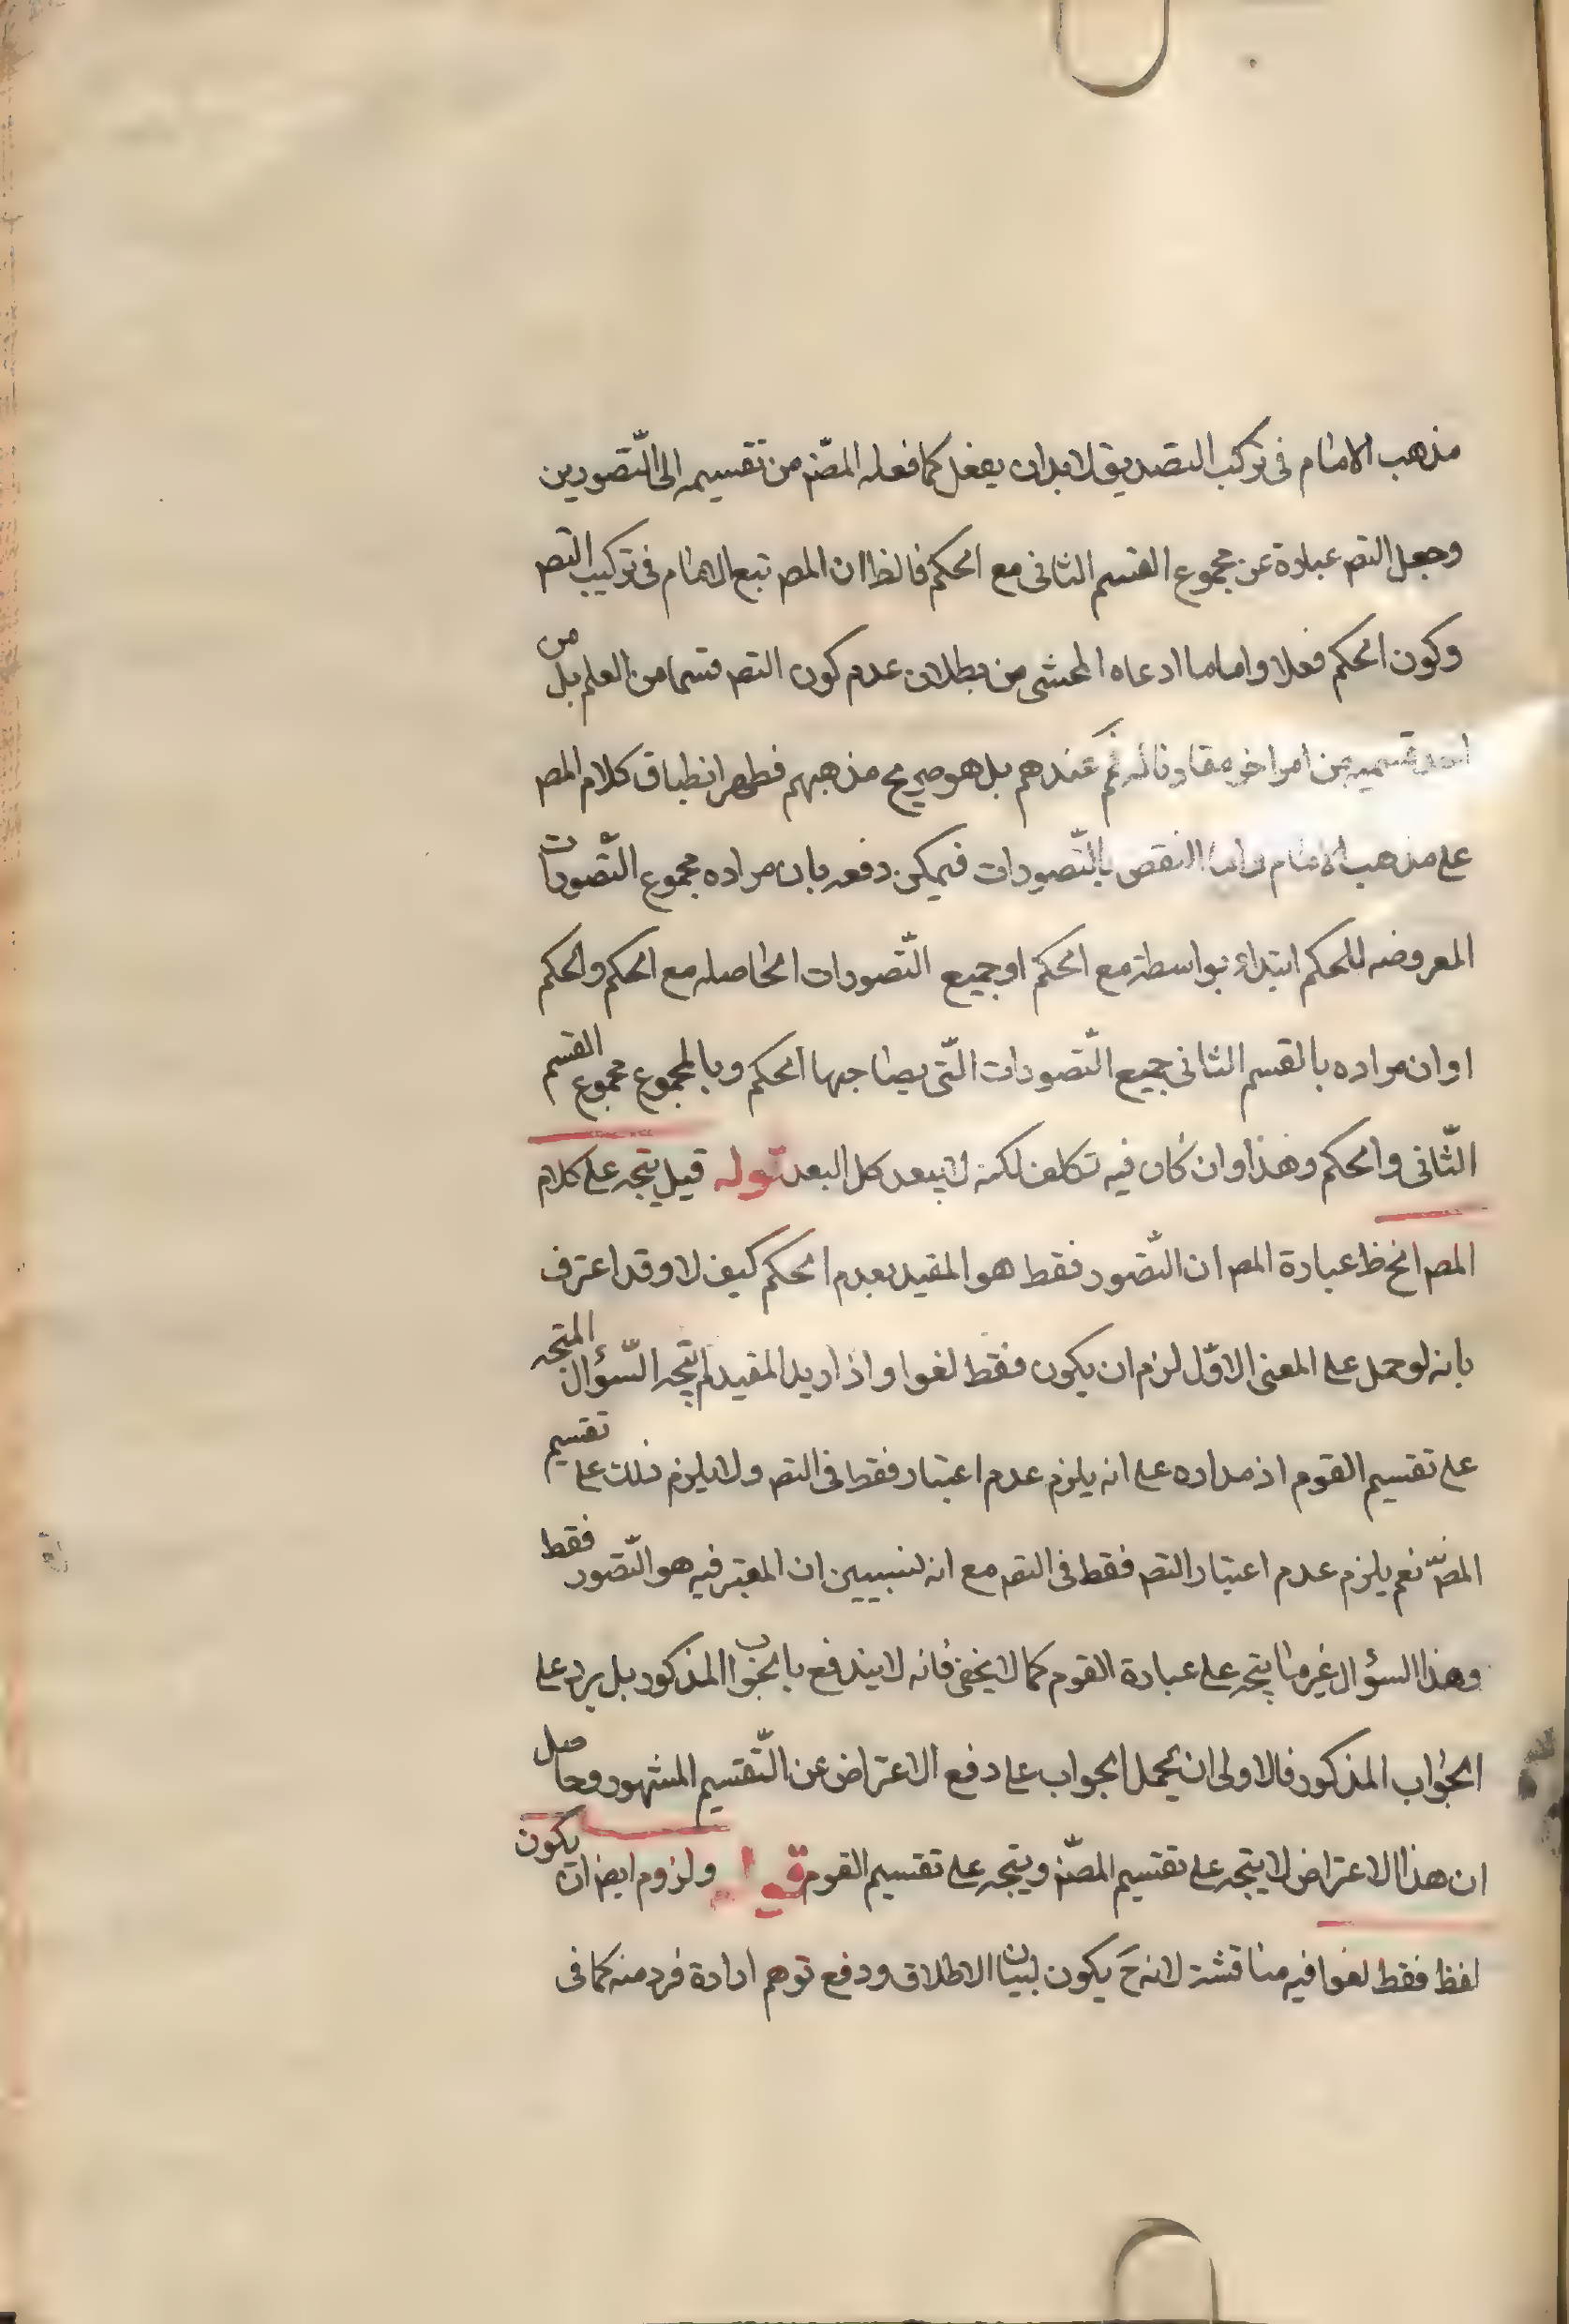 مذهب الامام فى تركب التصديق لابد ان يفعل كما فعله المصّنف من تقسيمه الى التّصورين
وجعل التص عبارة عن مجموع القسم الثانى مع الحكم فالظا ان المص تبع الامام فى تركيب التص
وكون الحكم فعلا واما ما ادعاه المحشى من بطلان عدم كون التص قسما من العلم بل من
احد قسميه من امر اخر مقارنا له فم عندهم بل هو صريح مذهبهم فظهر انطباق كلام المص
على مذهب الامام واما النقض بالتّصورات فيمكن دفعه بان مراده مجموع التّصورات
المعروضه للحكم ابتداء بواسطة مع الحكم او جميع التّصورات الحاصله مع الحكم والحكم
او ان مراده بالقسم الثانى جميع التّصورات التّى يصاحبها الحكم وبالمجموع مجموع القسم
الثّانى والحكم وهذا وان كان فيه تكلف لكنه لا يبعد كل البعد قوله قيل يتجه على كلام
المص الخ ظ عبارة المص ان التّصور فقط هو المقيد بعدم الحكم كيف لا وقد اعترف
بانه لو حمل على المعنى الاوّل لزم ان يكون فقط لغوا واذا اريد المقيد لم يتّجه السّؤال المتجه
على تقسيم القوم اذ مداره على انه يلزم عدم اعتبار فقط فى التص ولا يلزم ذلك على تقسيم
المصّنف نعم يلزم عدم اعتبار التص فقط فى التص مع انه لنسيبين ان المعتبر فيه هو التّصور فقط
وهذا السؤال غير ما يتجه على عبارة القوم كما لا يخفى فانه لا يندفع بالجواب المذكور بل يرد على
الجواب المذكور فالاولى ان يحمل الجواب على دفع الاعتراض عن التّقسيم المشهور وحاصل
ان هذا الاعتراض لا يتجه على تقسيم المصّنف ويتجه على تقسيم القوم قوله ولزوم ايض ان يكون
لفظ فقط لغوا فيه مناقشة لانه ح يكون لبيان الاطلاق ودفع توهم ارادة فرد منه كما فى